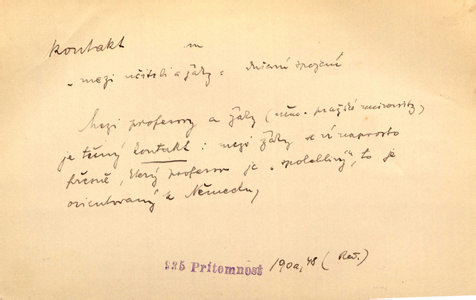 kontakt m
„mezi učiteli a žáky“ duševní spojení
Mezi profesory a žáky (něm. pražské university)
je těsný kontakt: mezi žáky se ví naprosto
přesně, který profesor je „spolehlivý“, to je
orientovaný k Německu,
935 Přítomnost 190a, 48 (Red.)